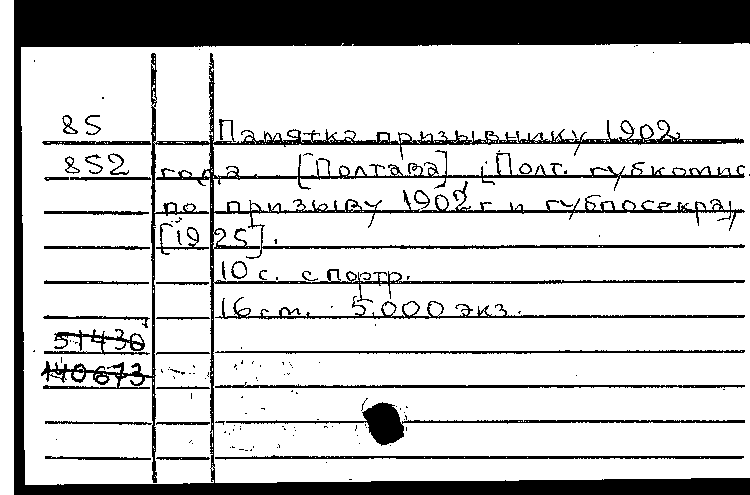 85 Памятка призывнику 1902
852 года. [Полтава] [Полт. губкомис.
по призыву 1902 г и губпосекра,
[1925].
10 с. с портр.
16 см. 5.000 экз.
51430
140673